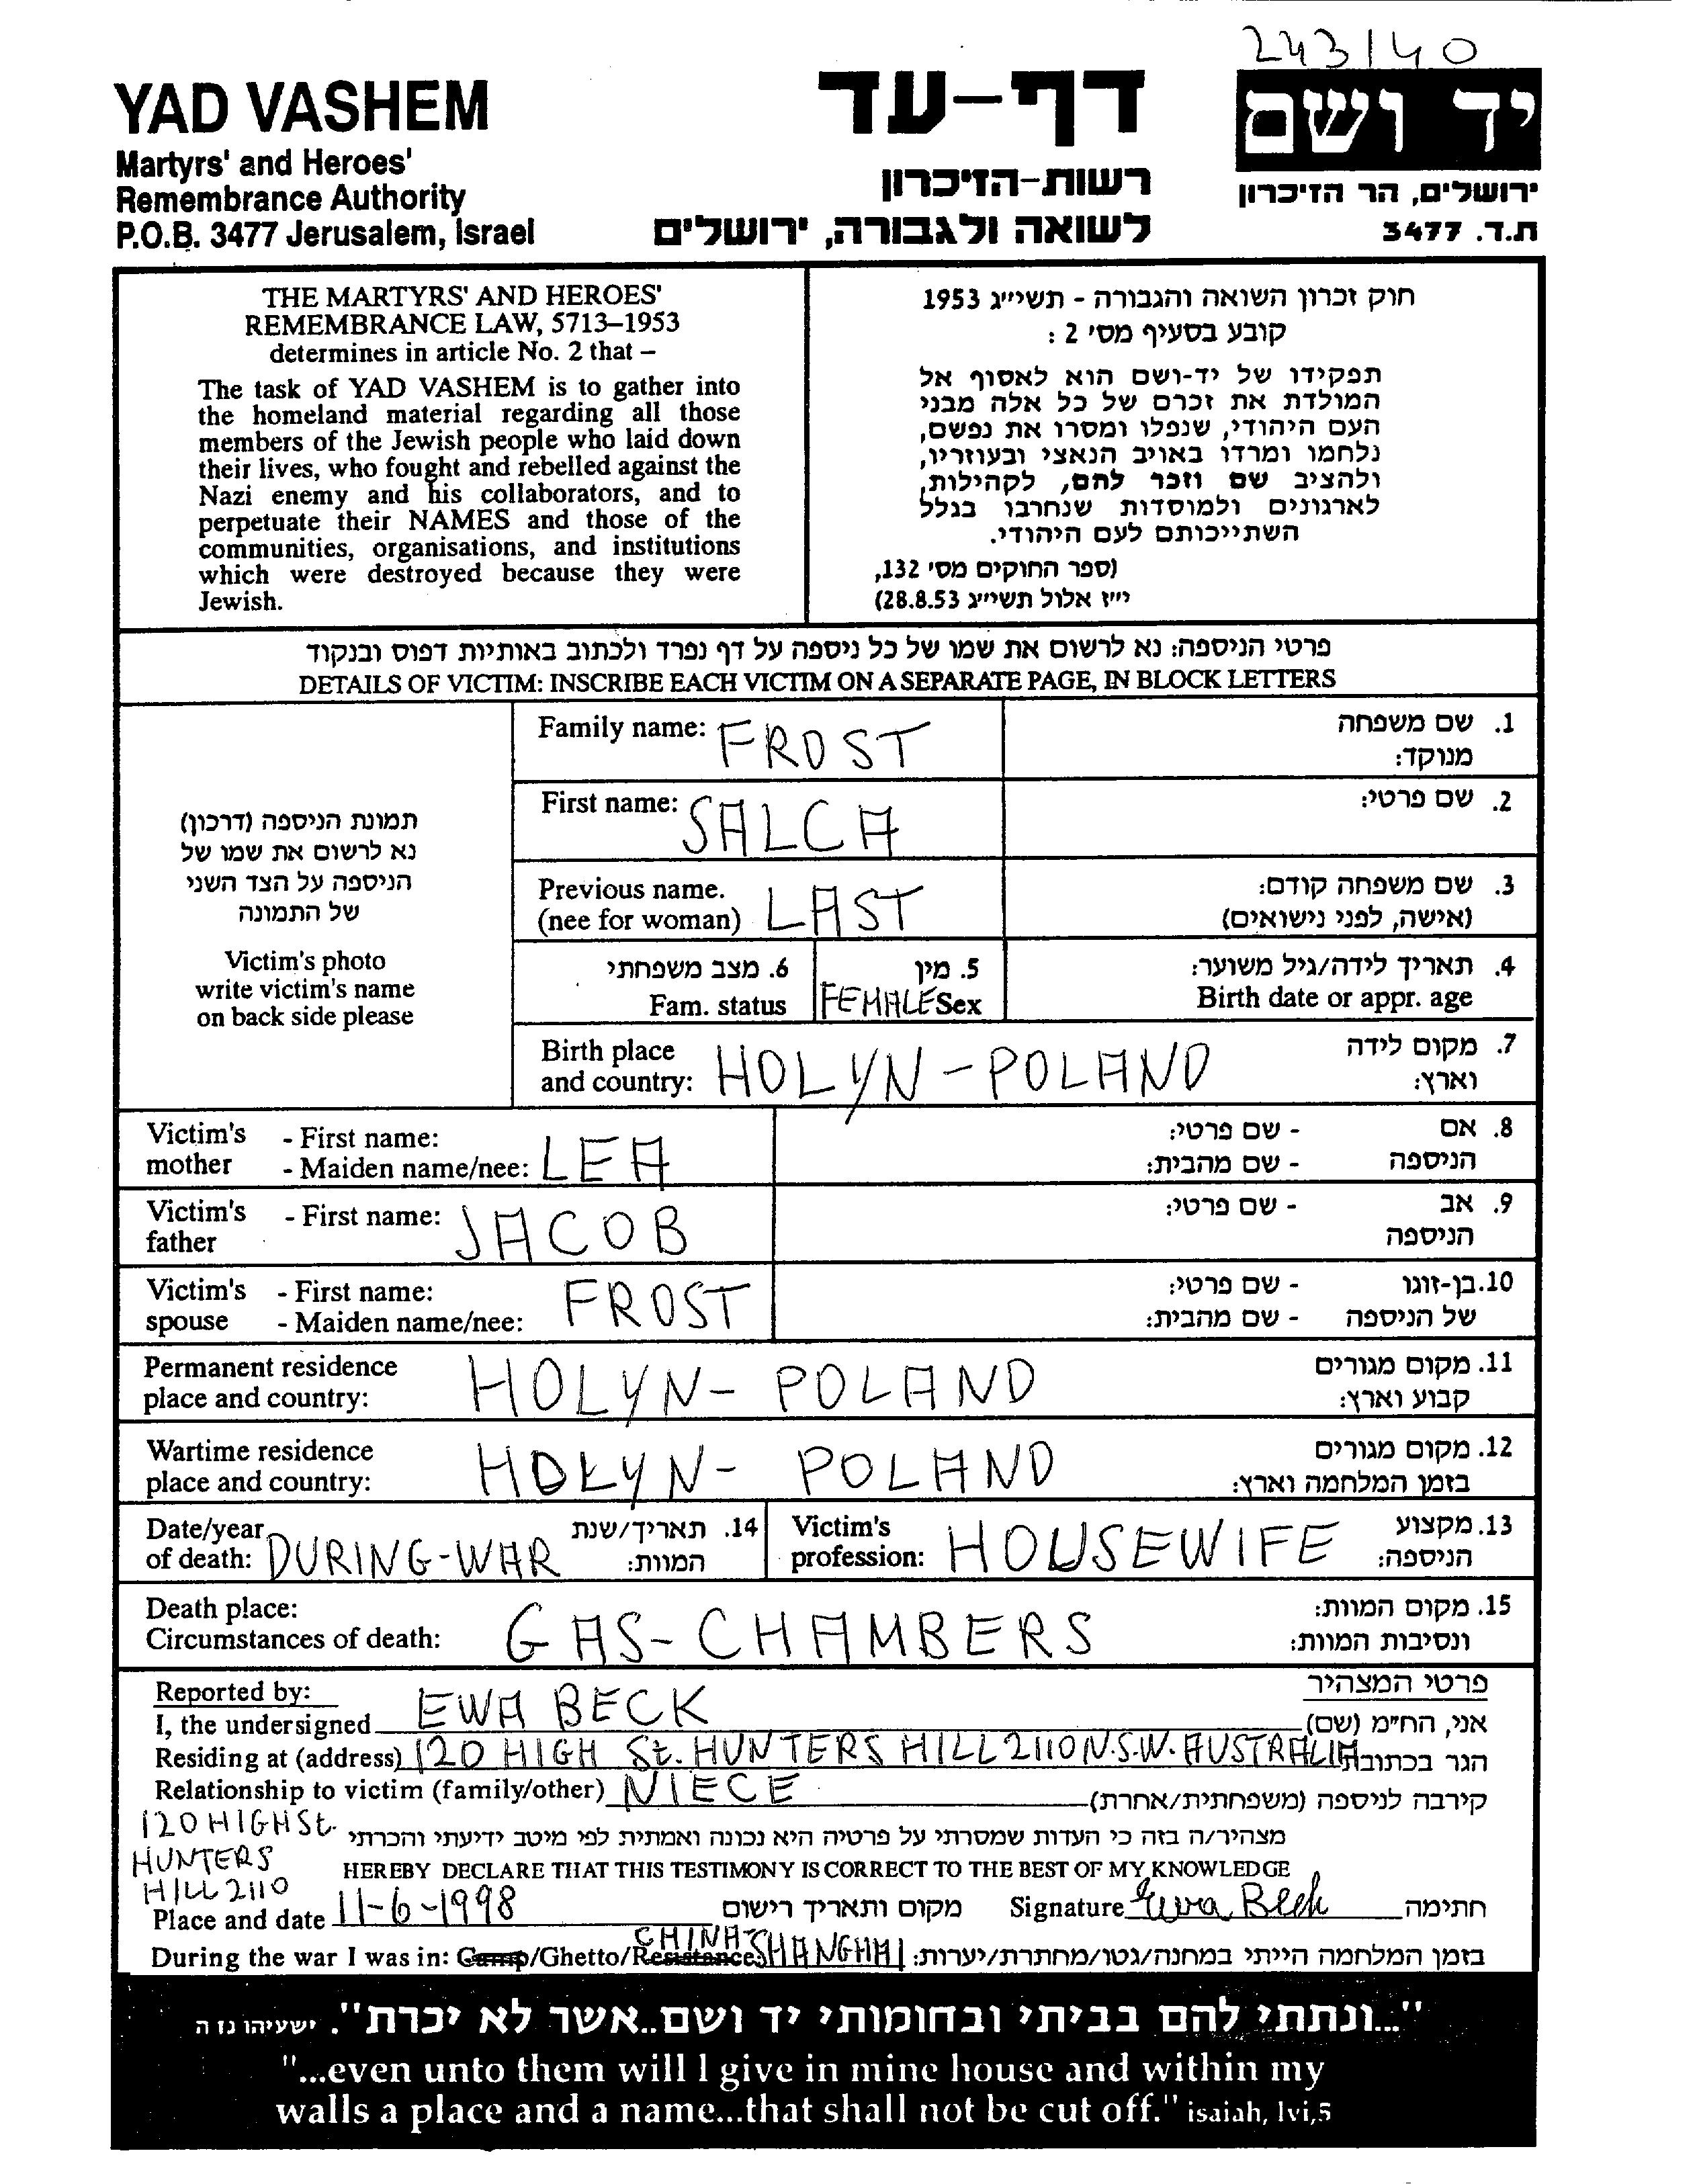 243140
YAD VASHEM
Martyrs' and Heroes'
Remembrance Authority
P.O.B. 3477 Jerusalem, Israel
דף-עד
רשות-הזיכרון
לשואה ולגבורה, ירושלים
יד ושם
ירושלים, הר הזיכרון
ת.ד. 3477
THE MARTYRS' AND HEROES'
REMEMBRANCE LAW, 5713–1953
determines in article No. 2 that –
The task of YAD VASHEM is to gather into
the homeland material regarding all those
members of the Jewish people who laid down
their lives, who fought and rebelled against the
Nazi enemy and his collaborators, and to
perpetuate their NAMES and those of the
communities, organisations, and institutions
which were destroyed because they were
Jewish.
חוק זכרון השואה והגבורה - תשי״ג 1953
קובע בסעיף מס' 2 :
תפקידו של יד-ושם הוא לאסוף אל
המולדת את זכרם של כל אלה מבני
העם היהודי, שנפלו ומסרו את נפשם,
נלחמו ומרדו באויב הנאצי ובעוזריו,
ולהציב שם וזכר להם, לקהילות,
לארגונים ולמוסדות שנחרבו בגלל
השתייכותם לעם היהודי.
(ספר החוקים מס' 132,
י״ז אלול תשי״ג 28.8.53)
פרטי הניספה: נא לרשום את שמו של כל ניספה על דף נפרד ולכתוב באותיות דפוס ובנקוד
DETAILS OF VICTIM: INSCRIBE EACH VICTIM ON A SEPARATE PAGE, IN BLOCK LETTERS
תמונת הניספה (דרכון)
נא לרשום את שמו של
הניספה על הצד השני
של התמונה
Victim's photo
write victim's name
on back side please
Family name: FROST
1. שם משפחה
מנוקד:
First name: SALCA
2. שם פרטי:
Previous name.
(nee for woman) LAST
3. שם משפחה קודם:
(אישה, לפני נישואים)
6. מצב משפחתי
Fam. status
5. מין
FEMALE Sex
4. תאריך לידה/גיל משוער:
Birth date or appr. age
Birth place
and country: HOLYN - POLAND
7. מקום לידה
וארץ:
Victim's - First name:
mother - Maiden name/nee: LEA
8. אם - שם פרטי:
הניספה - שם מהבית:
Victim's - First name: JACOB
father
9. אב - שם פרטי:
הניספה
Victim's - First name: FROST
spouse - Maiden name/nee:
10. בן-זוגו - שם פרטי:
של הניספה - שם מהבית:
Permanent residence
place and country: HOLYN - POLAND
11. מקום מגורים
קבוע וארץ:
Wartime residence
place and country: HOLYN - POLAND
12. מקום מגורים
בזמן המלחמה וארץ:
Date/year
of death: DURING-WAR
14. תאריך/שנת
המוות:
Victim's
profession: HOUSEWIFE
13. מקצוע
הניספה:
Death place:
Circumstances of death: GAS-CHAMBERS
15. מקום המוות:
ונסיבות המוות:
Reported by:
פרטי המצהיר
I, the undersigned EWA BECK אני, הח״מ (שם)
Residing at (address) 120 HIGH St. HUNTERS HILL 2110 N.S.W. AUSTRALIA הגר בכתובת
Relationship to victim (family/other) NIECE קירבה לניספה (משפחתית/אחרת)
120 HIGH St.
HUNTERS
HILL 2110
מצהיר/ה בזה כי העדות שמסרתי על פרטיה היא נכונה ואמתית לפי מיטב ידיעתי והכרתי
HEREBY DECLARE THAT THIS TESTIMONY IS CORRECT TO THE BEST OF MY KNOWLEDGE
Place and date 11-6-1998 מקום ותאריך רישום Signature Ewa Beck חתימה
During the war I was in: Camp/Ghetto/Resistance: CHINA SHANGHAI בזמן המלחמה הייתי במחנה/גטו/מחתרת/יערות:
"...ונתתי להם בביתי ובחומותי יד ושם..אשר לא יכרת". ישעיהו נו ה
"...even unto them will I give in mine house and within my
walls a place and a name...that shall not be cut off." isaiah, lvi,5